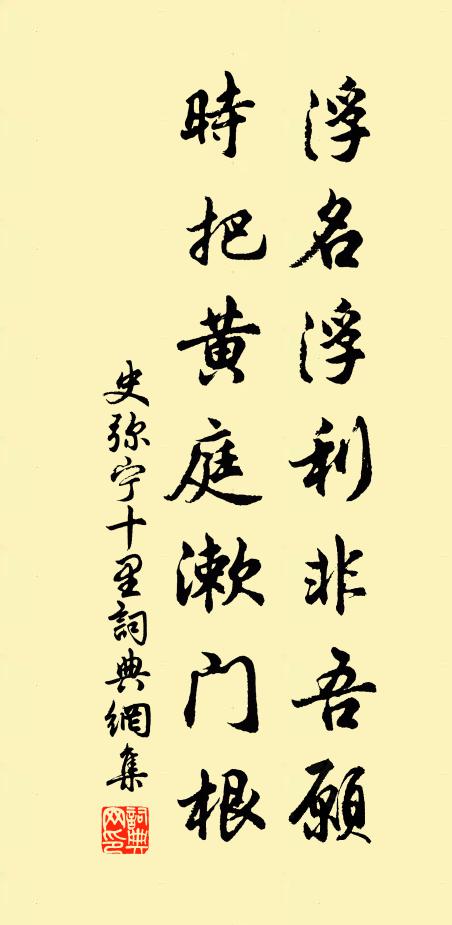 浮名浮利非吾願
時把黃庭漱門根
史弥宁十里詞典網集
詞典網印